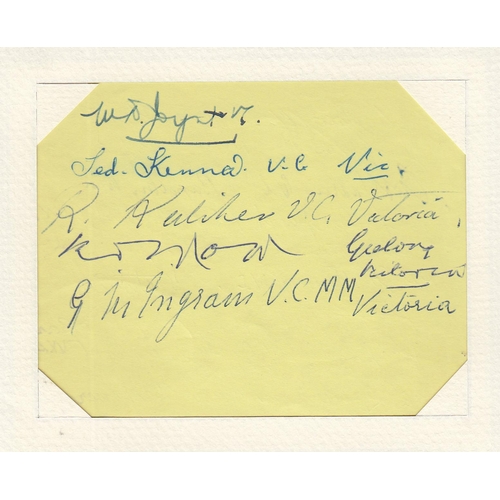 W.D. Joynt V.C.
Ted. Kenna. V.C. Vic.
R. Kelliher V.C. Victoria.
R V Moon Geelong
Victoria
G M Ingram V.C. MM Victoria